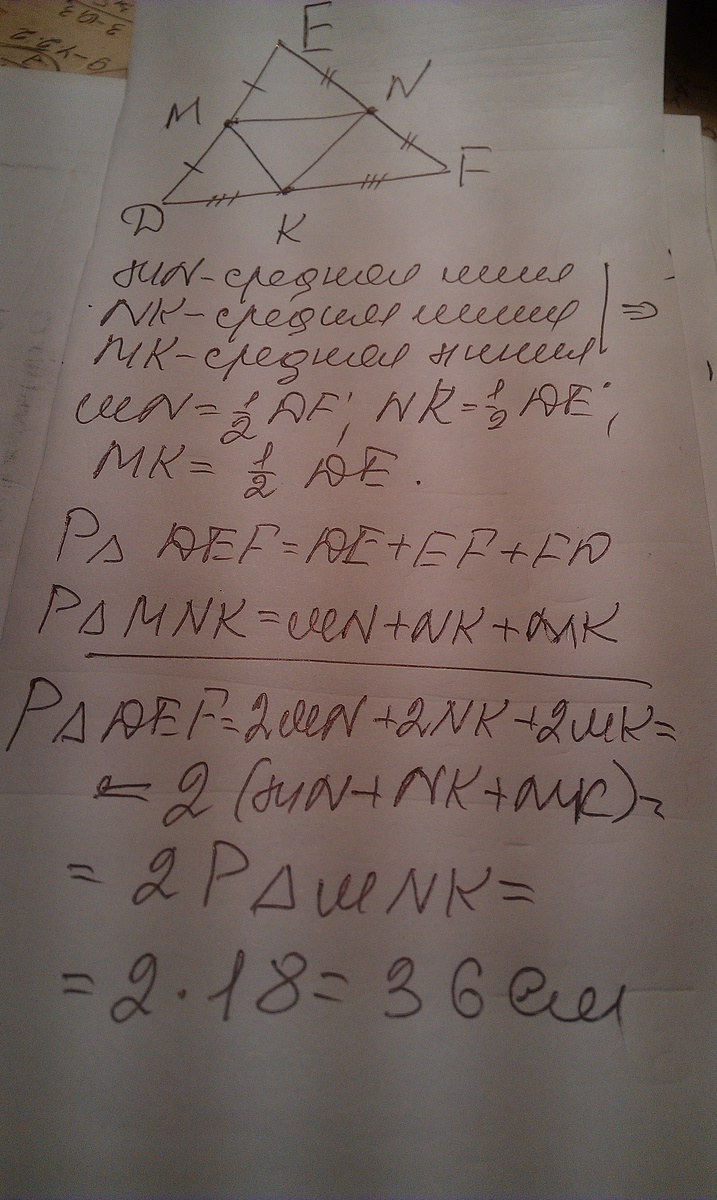 E
M
N
D
K
F
MN - средняя линия
NK - средняя линия
MK - средняя линия
⇒
MN = 1/2 DF; NK = 1/2 DE;
MK = 1/2 DE.
P△ DEF = DE + EF + FD
P△ MNK = MN + NK + MK
P△ DEF = 2MN + 2NK + 2MK =
= 2 (MN + NK + MK) =
= 2 P△ MNK =
= 2 · 18 = 36 см